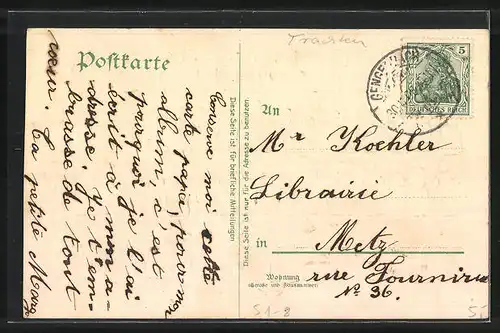 Postkarte
Conserve moi cette
carte papa, pour mon
album, c'est
pourquoi je l'ai
écrit à mon a-
dresse. Je t'em-
brasse de tout
coeur.
Ta petite
Diese Seite ist für briefliche Mitteilungen
Diese Seite ist nur für die Adresse zu benutzen
Trachten
5
DEUTSCHES REICH
GENGENBACH
An
Mr Koehler
Librairie
in Metz
Wohnung
(Straße und Hausnummer)
rue
No 36.
51-8